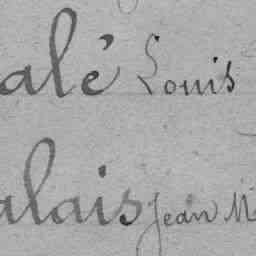 alé Louis
alais Jean M